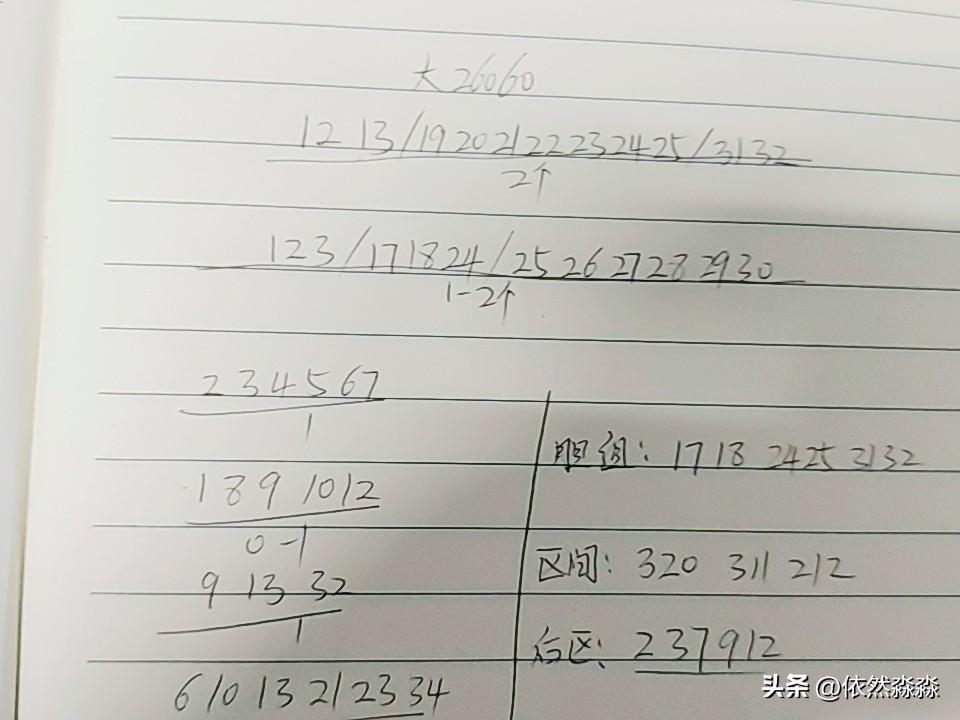 大26060
12 13/19 20 21 22 23 24 25/31 32
2个
1 2 3/17 18 24/25 26 27 28 29 30
1-2个
2 3 4 5 6 7
1
1 8 9 10 12
0-1
9 13 32
1
6 10 13 21 23 34
胆组: 17 18 24 25 31 32
区间: 320 311 212
后区: 2 3 7 9 12
头条 @依然淼淼